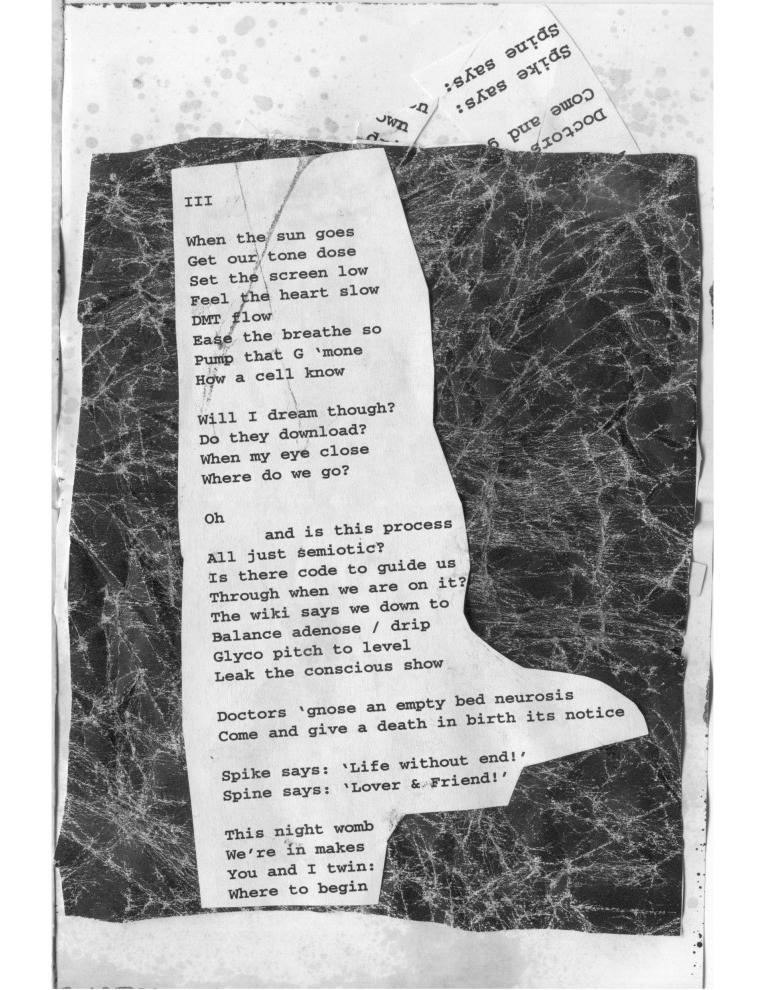 Spine says:
Spike says:
Come and g
Doctors
own
III
When the sun goes
Get our tone dose
Set the screen low
Feel the heart slow
DMT flow
Ease the breathe so
Pump that G ‘mone
How a cell know
Will I dream though?
Do they download?
When my eye close
Where do we go?
Oh
and is this process
All just semiotic?
Is there code to guide us
Through when we are on it?
The wiki says we down to
Balance adenose / drip
Glyco pitch to level
Leak the conscious show
Doctors ‘gnose an empty bed neurosis
Come and give a death in birth its notice
Spike says: ‘Life without end!’
Spine says: ‘Lover & Friend!’
This night womb
We’re in makes
You and I twin:
Where to begin